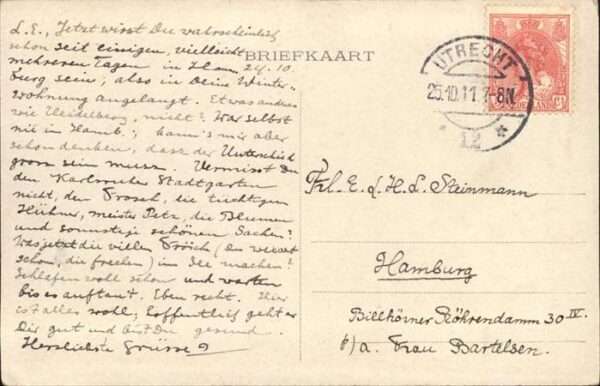 BRIEFKAART
24.10.
L. E., Jetzt wirst Du wahrscheinlich
schon seit einigen, vielleicht
mehreren Tagen in Hamm-
burg sein; also in Deine Winter-
wohnung angelangt. Etwas anders
wie Heidelberg, nicht? War selbst
nie in Hamb.; kann's mir aber
schon denken, dass der Unterschied
gross sein muss. Vermisst Du
den Karlsruher Stadtgarten
nicht, den Frosch, die tüchtigen
Hühner, meister Petz, die Blumen
und sonnstige schönen Sachen?
Was jetzt die vielen Frösch (Du weisst
schon, die frechen) im See machen?
Schlafen wohl schon und warten
bis es auftaut. Eben recht. Hier
ist alles wohl; hoffentlich geht er
Dir gut und bist Du gesund.
Herzliebste Grüsse
UTRECHT
25.10.11 7-8N
12
NEDERLAND
Frl. E. d. H. L. Steinmann
Hamburg
Billhörner Röhrendamm 30 IV.
p/a. Frau Bartelsen.